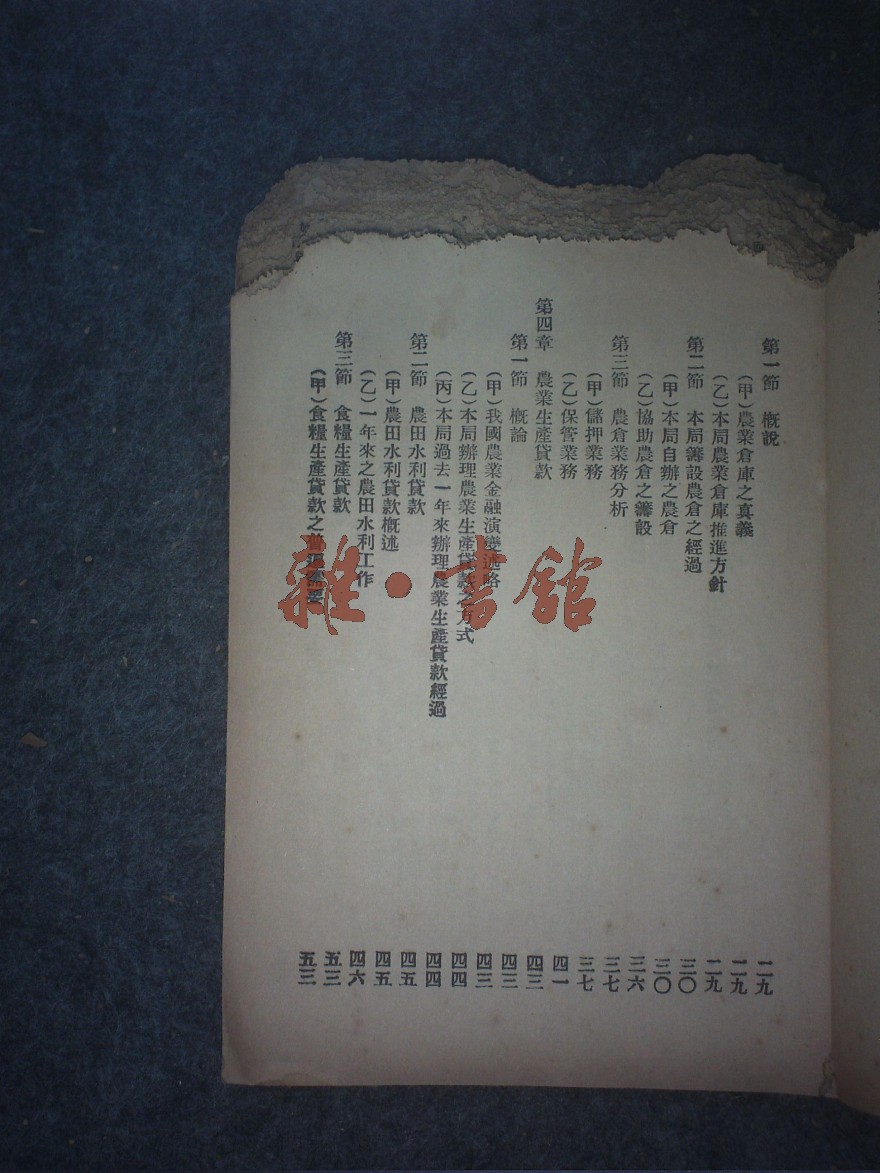 第一節 概說 二九
(甲)農業倉庫之真義 二九
(乙)本局農業倉庫推進方針 二九
第二節 本局籌設農倉之經過 三〇
(甲)本局自辦之農倉 三〇
(乙)協助農倉之籌設 三六
第三節 農倉業務分析 三七
(甲)儲押業務 三七
(乙)保管業務 四一
第四章 農業生產貸款 四三
第一節 概論 四三
(甲)我國農業金融演變述略 四三
(乙)本局辦理農業生產貸款之方式 四四
(丙)本局過去一年來辦理農業生產貸款經過 四四
第二節 農田水利貸款 四五
(甲)農田水利貸款概述 四五
(乙)一年來之農田水利工作 四六
第三節 食糧生產貸款 五三
(甲)食糧生產貸款之普遍需要 五三
雜·書館